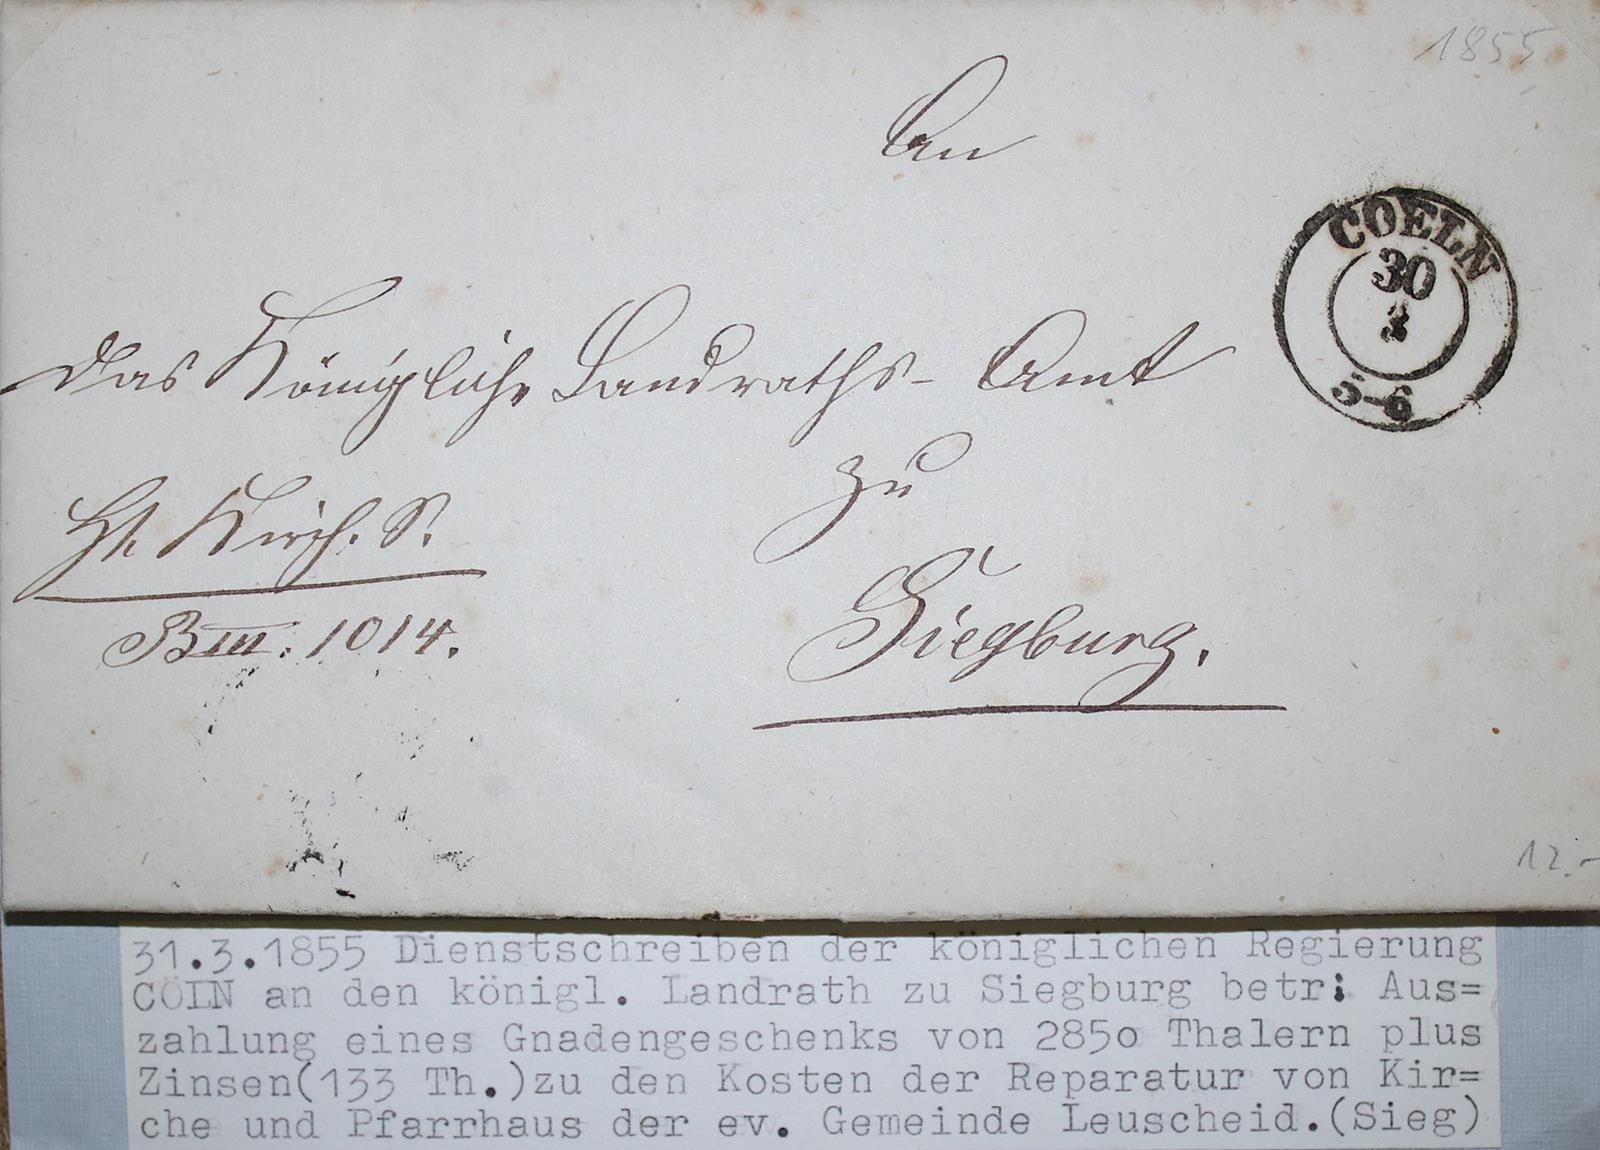 1855
An
COELN
30
3
5-6
das Königliche Landraths-Amt
zu
Siegburg.
Hl. Kirch. S.
BIII. 1014.
12.-
31.3.1855 Dienstschreiben der königlichen Regierung
CÖLN an den königl. Landrath zu Siegburg betr: Aus=
zahlung eines Gnadengeschenks von 285o Thalern plus
Zinsen(133 Th.)zu den Kosten der Reparatur von Kir=
che und Pfarrhaus der ev. Gemeinde Leuscheid.(Sieg)